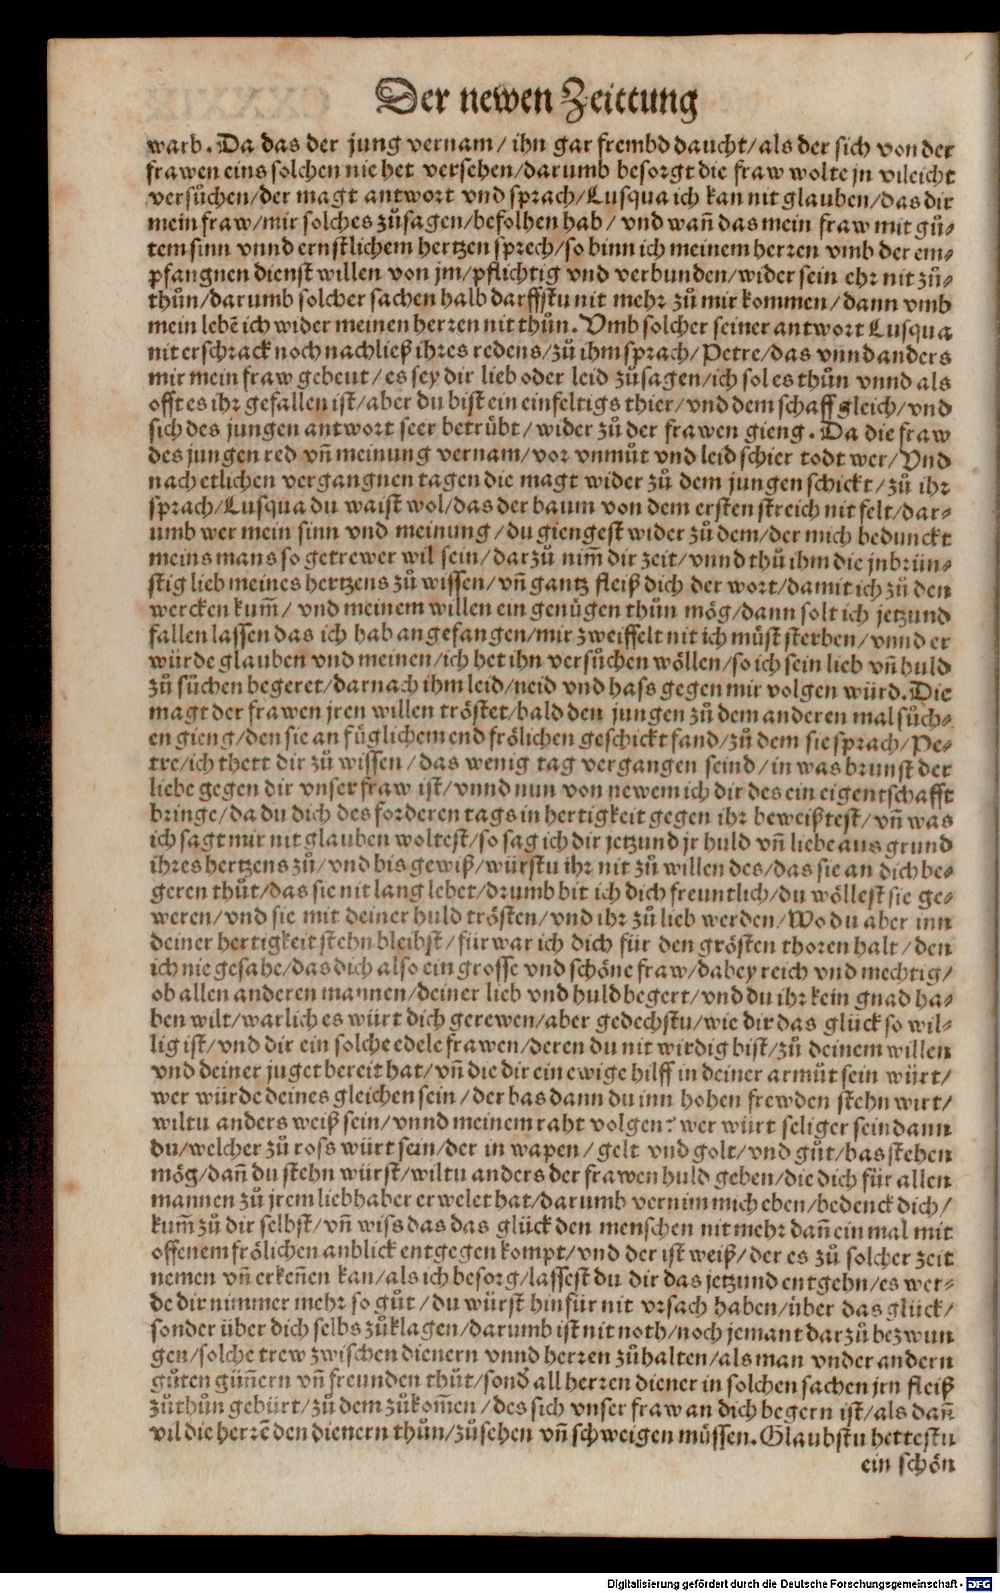 Der newen Zeittung
warb. Da das der jung vernam/ ihn gar frembd daucht/als der sich von der
frawen eins solchen nie het versehen/darumb besorgt die fraw wolte jn vileicht
versůchen/der magt antwort vnd sprach/Lusqua ich kan nit glauben/das dir
mein fraw/mir solches zůsagen/befolhen hab/ vnd wañ das mein fraw mit gů⸗
tem sinn vnnd ernstlichem hertzen sprech/so binn ich meinem herren vmb der em⸗
pfangnen dienst willen von jm/pflichtig vnd verbunden/wider sein ehr nit zů⸗
thůn/darumb solcher sachen halb darffstu nit mehr zů mir kommen/dann vmb
mein lebē ich wider meinen herren nit thůn. Vmb solcher seiner antwort Lusqua
nit erschrack noch nachließ ihres redens/zů ihm sprach/Petre/das vnnd anders
mir mein fraw gebeut/es sey dir lieb oder leid zůsagen/ich sol es thůn vnnd als
offt es ihr gefallen ist/aber du bist ein einfeltigs thier/vnd dem schaff gleich/vnd
sich des jungen antwort seer betrübt/wider zů der frawen gieng. Da die fraw
des jungen red vñ meinung vernam/vor vnmůt vnd leid schier todt wer/Vnd
nach etlichen vergangnen tagen die magt wider zů dem jungen schickt/zů ihr
sprach/Lusqua du waist wol/das der baum von dem ersten streich nit felt/dar⸗
umb wer mein sinn vnd meinung/du giengest wider zů dem/der mich bedunckt
meins mans so getrewer wil sein/darzů nim̃ dir zeit/vnnd thů ihm die jnbrün⸗
stig lieb meines hertzens zů wissen/vñ gantz fleiß dich der wort/damit ich zů den
wercken kum̃/ vnd meinem willen ein genügen thůn mög/dann solt ich jetzund
fallen lassen das ich hab angefangen/mir zweiffelt nit ich můst sterben/vnnd er
würde glauben vnd meinen/ich het ihn versůchen wöllen/so ich sein lieb vñ huld
zů sůchen begeret/darnach ihm leid/neid vnd hass gegen mir volgen würd. Die
magt der frawen jren willen tröstet/bald den jungen zů dem anderen mal sůch⸗
en gieng/den sie an füglichem end frölichen geschickt fand/zů dem sie sprach/Pe⸗
tre/ich thett dir zů wissen/das wenig tag vergangen seind/in was brunst der
liebe gegen dir vnser fraw ist/vnnd nun von newem ich dir des ein eigentschafft
bringe/da du dich des forderen tags in hertigkeit gegen ihr beweißtest/vñ was
ich sagt mir nit glauben woltest/so sag ich dir jetzund jr huld vñ liebe aus grund
ihres hertzens zů/vnd bis gewiß/würstu ihr nit zů willen des/das sie an dich be⸗
geren thůt/das sie nit lang lebet/drumb bit ich dich freuntlich/du wöllest sie ge⸗
weren/vnd sie mit deiner huld trösten/vnd ihr zů lieb werden/Wo du aber inn
deiner hertigkeit stehn bleibst/fürwar ich dich für den grösten thoren halt/den
ich nie gesahe/das dich also ein grosse vnd schöne fraw/dabey reich vnd mechtig/
ob allen anderen mannen/deiner lieb vnd huld begert/vnd du ihr kein gnad ha⸗
ben wilt/warlich es würt dich gerewen/aber gedechstu/wie dir das glück so wil⸗
lig ist/vnd dir ein solche edele frawen/deren du nit wirdig bist/zů deinem willen
vnd deiner juget bereit hat/vñ die dir ein ewige hilff in deiner armůt sein würt/
wer würde deines gleichen sein/der bas dann du inn hohen frewden stehn wirt/
wiltu anders weiß sein/vnnd meinem raht volgen? wer würt seliger sein dann
du/welcher zů ross würt sein/der in wapen/ gelt vnd golt/vnd gůt/bas stehen
mög/dañ du stehn würst/wiltu anders der frawen huld geben/die dich für allen
mannen zů jrem liebhaber erwelet hat/darumb vernim mich eben/bedenck dich/
kum̃ zů dir selbst/vñ wiss das das glück den menschen nit mehr dañ ein mal mit
offenem frölichen anblick entgegen kompt/vnd der ist weiß/der es zů solcher zeit
nemen vñ erkeñen kan/als ich besorg/lassest du dir das jetzund entgehn/es wer⸗
de dir nimmer mehr so gůt/du würst hinfür nit vrsach haben/über das glück/
sonder über dich selbs zůklagen/darumb ist nit noth/noch jemant darzů bezwun
gen/solche trew zwischen dienern vnnd herren zůhalten/als man vnder andern
gůten güñern vñ freunden thůt/sond̕ all herren diener in solchen sachen jrn fleiß
zůthůn gebürt/zů dem zůkom̃en/des sich vnser fraw an dich begern ist/als dañ
vil die herrē den dienern thůn/zůsehen vñ schweigen müssen. Glaubstu hettestu
ein schön
Digitalisierung gefördert durch die Deutsche Forschungsgemeinschaft - DFG